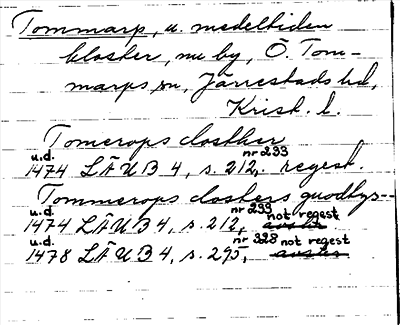 Tommarp, u. medeltiden
kloster, nu by, Ö. Tom-
marps sn, Järrestads hd,
Krist. l.
Tomerops closther
u.d. nr 233
1474 LÄUB 4, s. 212, regest.
Tommerops closters goodhz--
u.d. nr 233 not regest
1474 LÄUB 4, s. 212, avskr
u.d. nr 328 not regest
1478 LÄUB 4, s. 295, avskr